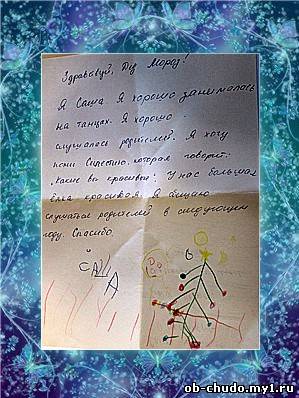 Здравствуй, Дед Мороз!
Я Саша. Я хорошо занималась
на танцах. Я хорошо
слушалась родителей. Я хочу
пони Силестию, которая говорит:
"Какие вы красивые". У нас большая
ёлка красивая. Я обещаю
слушаться родителей в следующем
году. Спасибо.
САША
ob-chudo.my1.ru